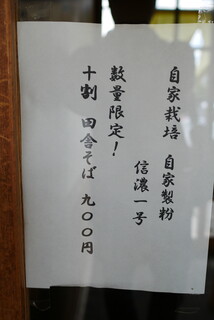 自家栽培 自家製粉
信濃一号
数量限定!
十割 田舎そば 九〇〇円